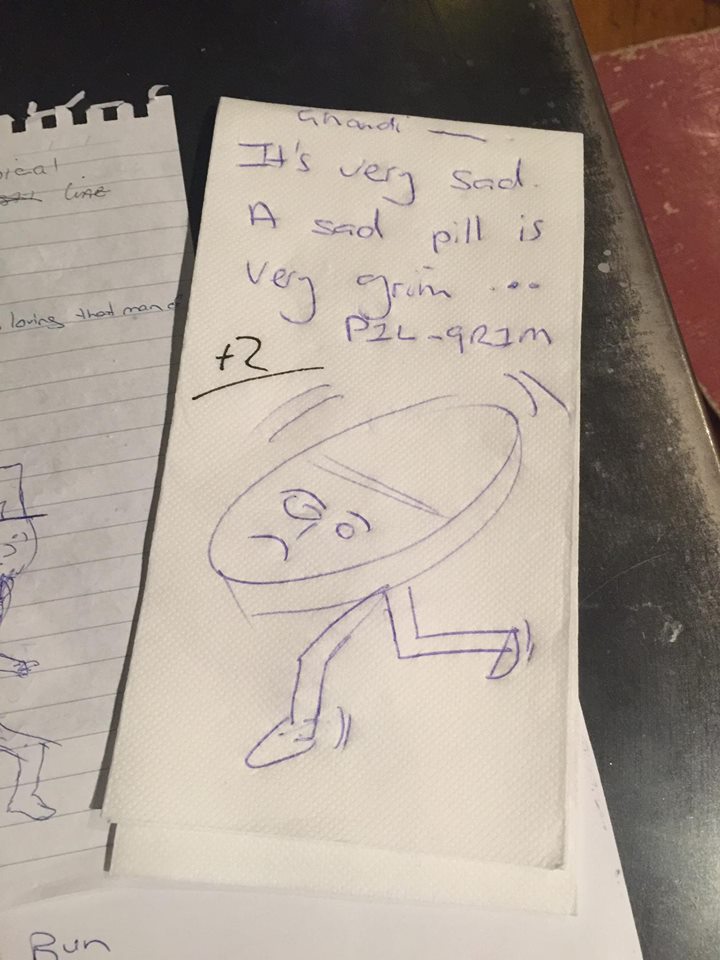 Ghandi —
It's very sad.
A sad pill is
very grim ...
PIL-GRIM
+2
line
loving that man
Run